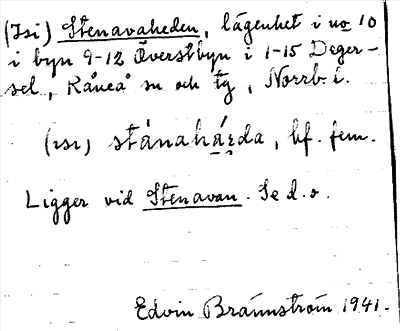 (Isi) Stenavaheden, lägenhet i no 10
i byn 9-12 Överstbyn i 1-15 Deger-
sel, Råneå sn och tg, Norrb. l.
(ısı) stánahā́ɛda, bf. fem.
Ligger vid Stenavan. Se d. o.
Edvin Brännström 1941.